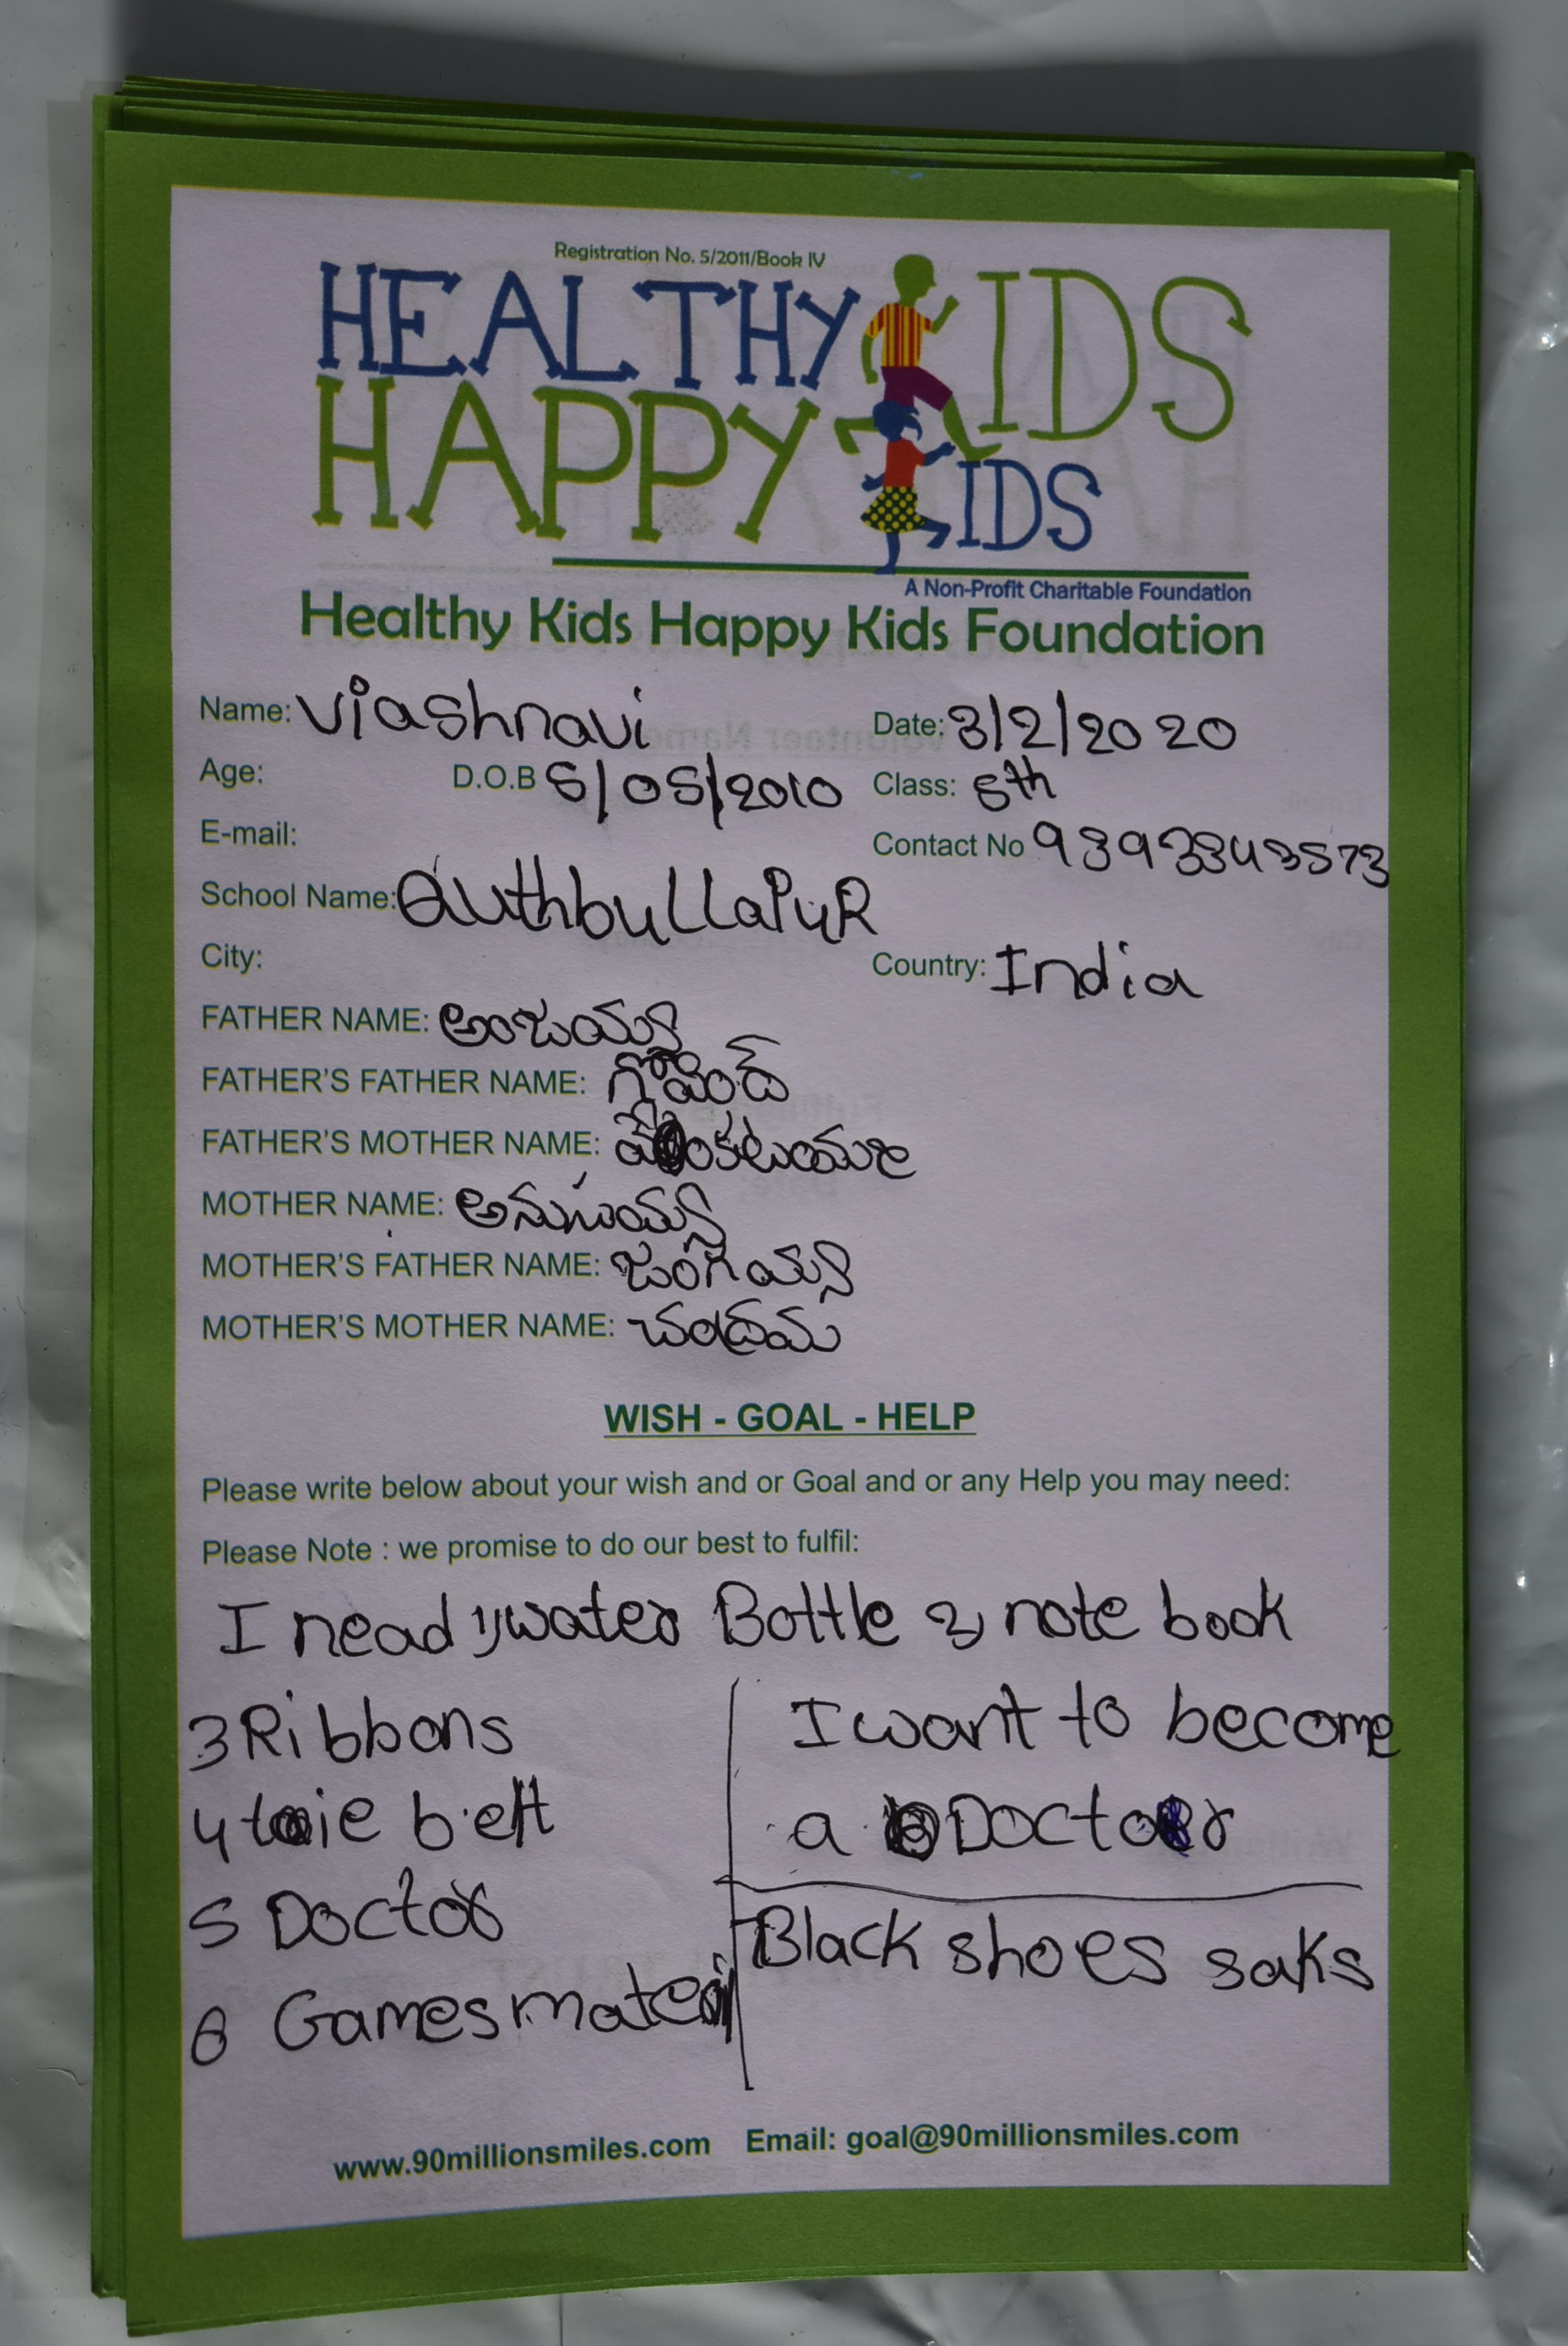 Registration No. 5/2011/Book IV
HEALTHY KIDS
HAPPY KIDS
A Non-Profit Charitable Foundation
Healthy Kids Happy Kids Foundation
Name: Viashnavi Date: 3/2/2020
Age: D.O.B 5/05/2010 Class: 5th
E-mail: Contact No 9393343573
School Name: QuthbullaPuR
City: Country: India
FATHER NAME: అంజయ్య
FATHER'S FATHER NAME: గోవింద్
FATHER'S MOTHER NAME:
MOTHER NAME:
MOTHER'S FATHER NAME: జంగయ్య
MOTHER'S MOTHER NAME: చంద్రమ
WISH - GOAL - HELP
Please write below about your wish and or Goal and or any Help you may need:
Please Note : we promise to do our best to fulfil:
I nead 1) water Bottle 2) note book
3 Ribbons
4 taie belt
5 Doctor
6 Games
I want to become
a Doctor
Black shoes saks
www.90millionsmiles.com Email: goal@90millionsmiles.com